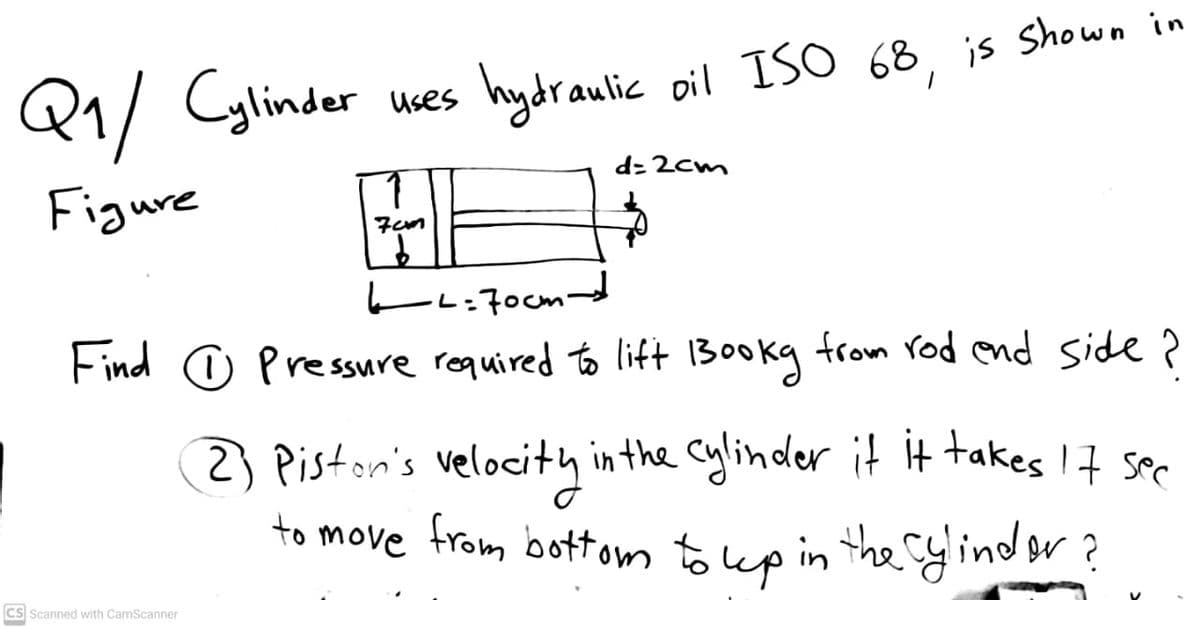 Q1/ Cylinder uses hydraulic oil ISO 68, is shown in
Figure
d=2cm
7cm
L=70cm
Find ① Pressure required to lift 1300kg from rod end side ?
2) Piston's velocity in the cylinder if it takes 17 sec
to move from bottom to up in the cylinder ?
CS Scanned with CamScanner